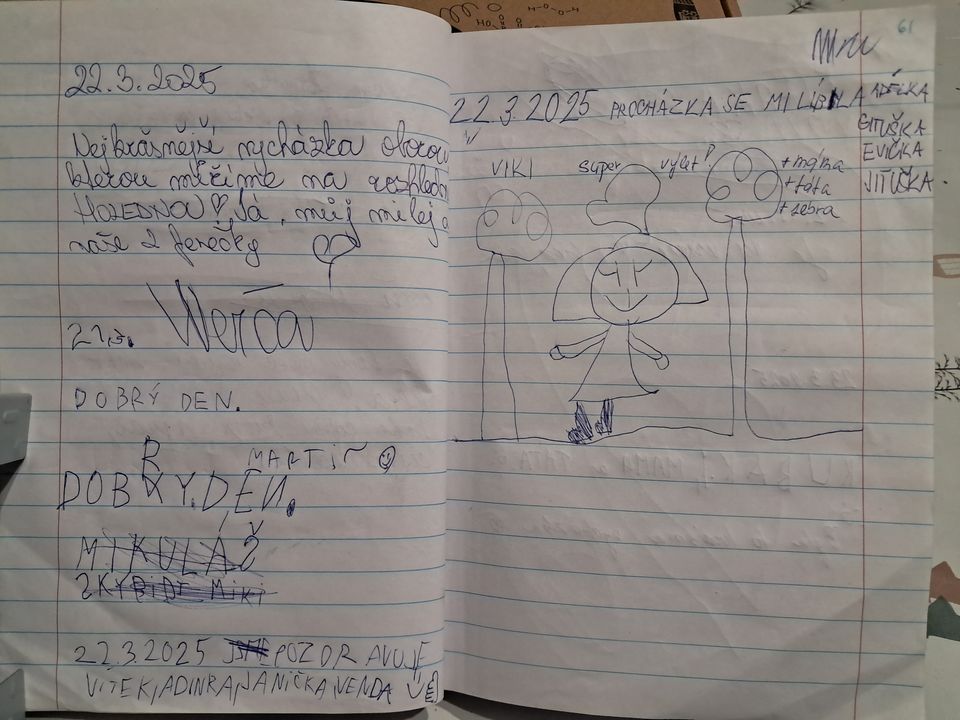 22.3.2025
Nejkrásnější vycházka oborou
kterou míříme na rozhlednu
HOŘEDNA Já, můj milej a
naše 2 fenečky
Werča
21.3.
DOBRÝ DEN.
R MARTiN
DOBRY.DEN.
MIKULÁŠ
2KYBIDE MiKi
22.3.2025 POZDRAVUJE
VÍTEK,ADINRA,JANIČKA,VENDA
61
22.3.2025 PROCHÁZKA SE MI LÍBILA ADÉLKA
GITUŠKA
EVIČKA
JITUŠKA
VIKI super výlet
+ máma
+ táta
+ zebra